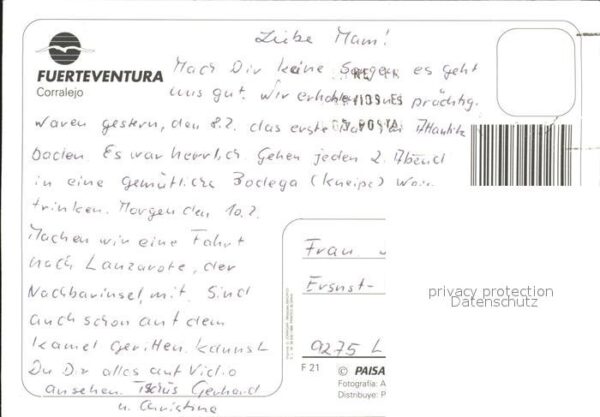 Liebe Mam!
FUERTEVENTURA
Corralejo
Mach Dir keine Sorgen, es geht
uns gut. Wir erholen uns prächtig.
Waren gestern, den 8.2. das erste Mal im Atlantik
baden. Es war herrlich. Gehen jeden 2. Abend
in eine gemütliche Bodega (Kneipe) Wein
trinken. Morgen den 10.2.
Machen wir eine Fahrt
nach Lanzarote, der
Nachbarinsel, mit. Sind
auch schon auf dem
Kamel geritten. Kannst
Du Dir alles auf Vidio
ansehen. Tschüs Gerhard
u. Christine
Frau
Ersnst-
9275 L
privacy protection
Datenschutz
F 21
© PAISA
Fotografia: A
Distribuye: P